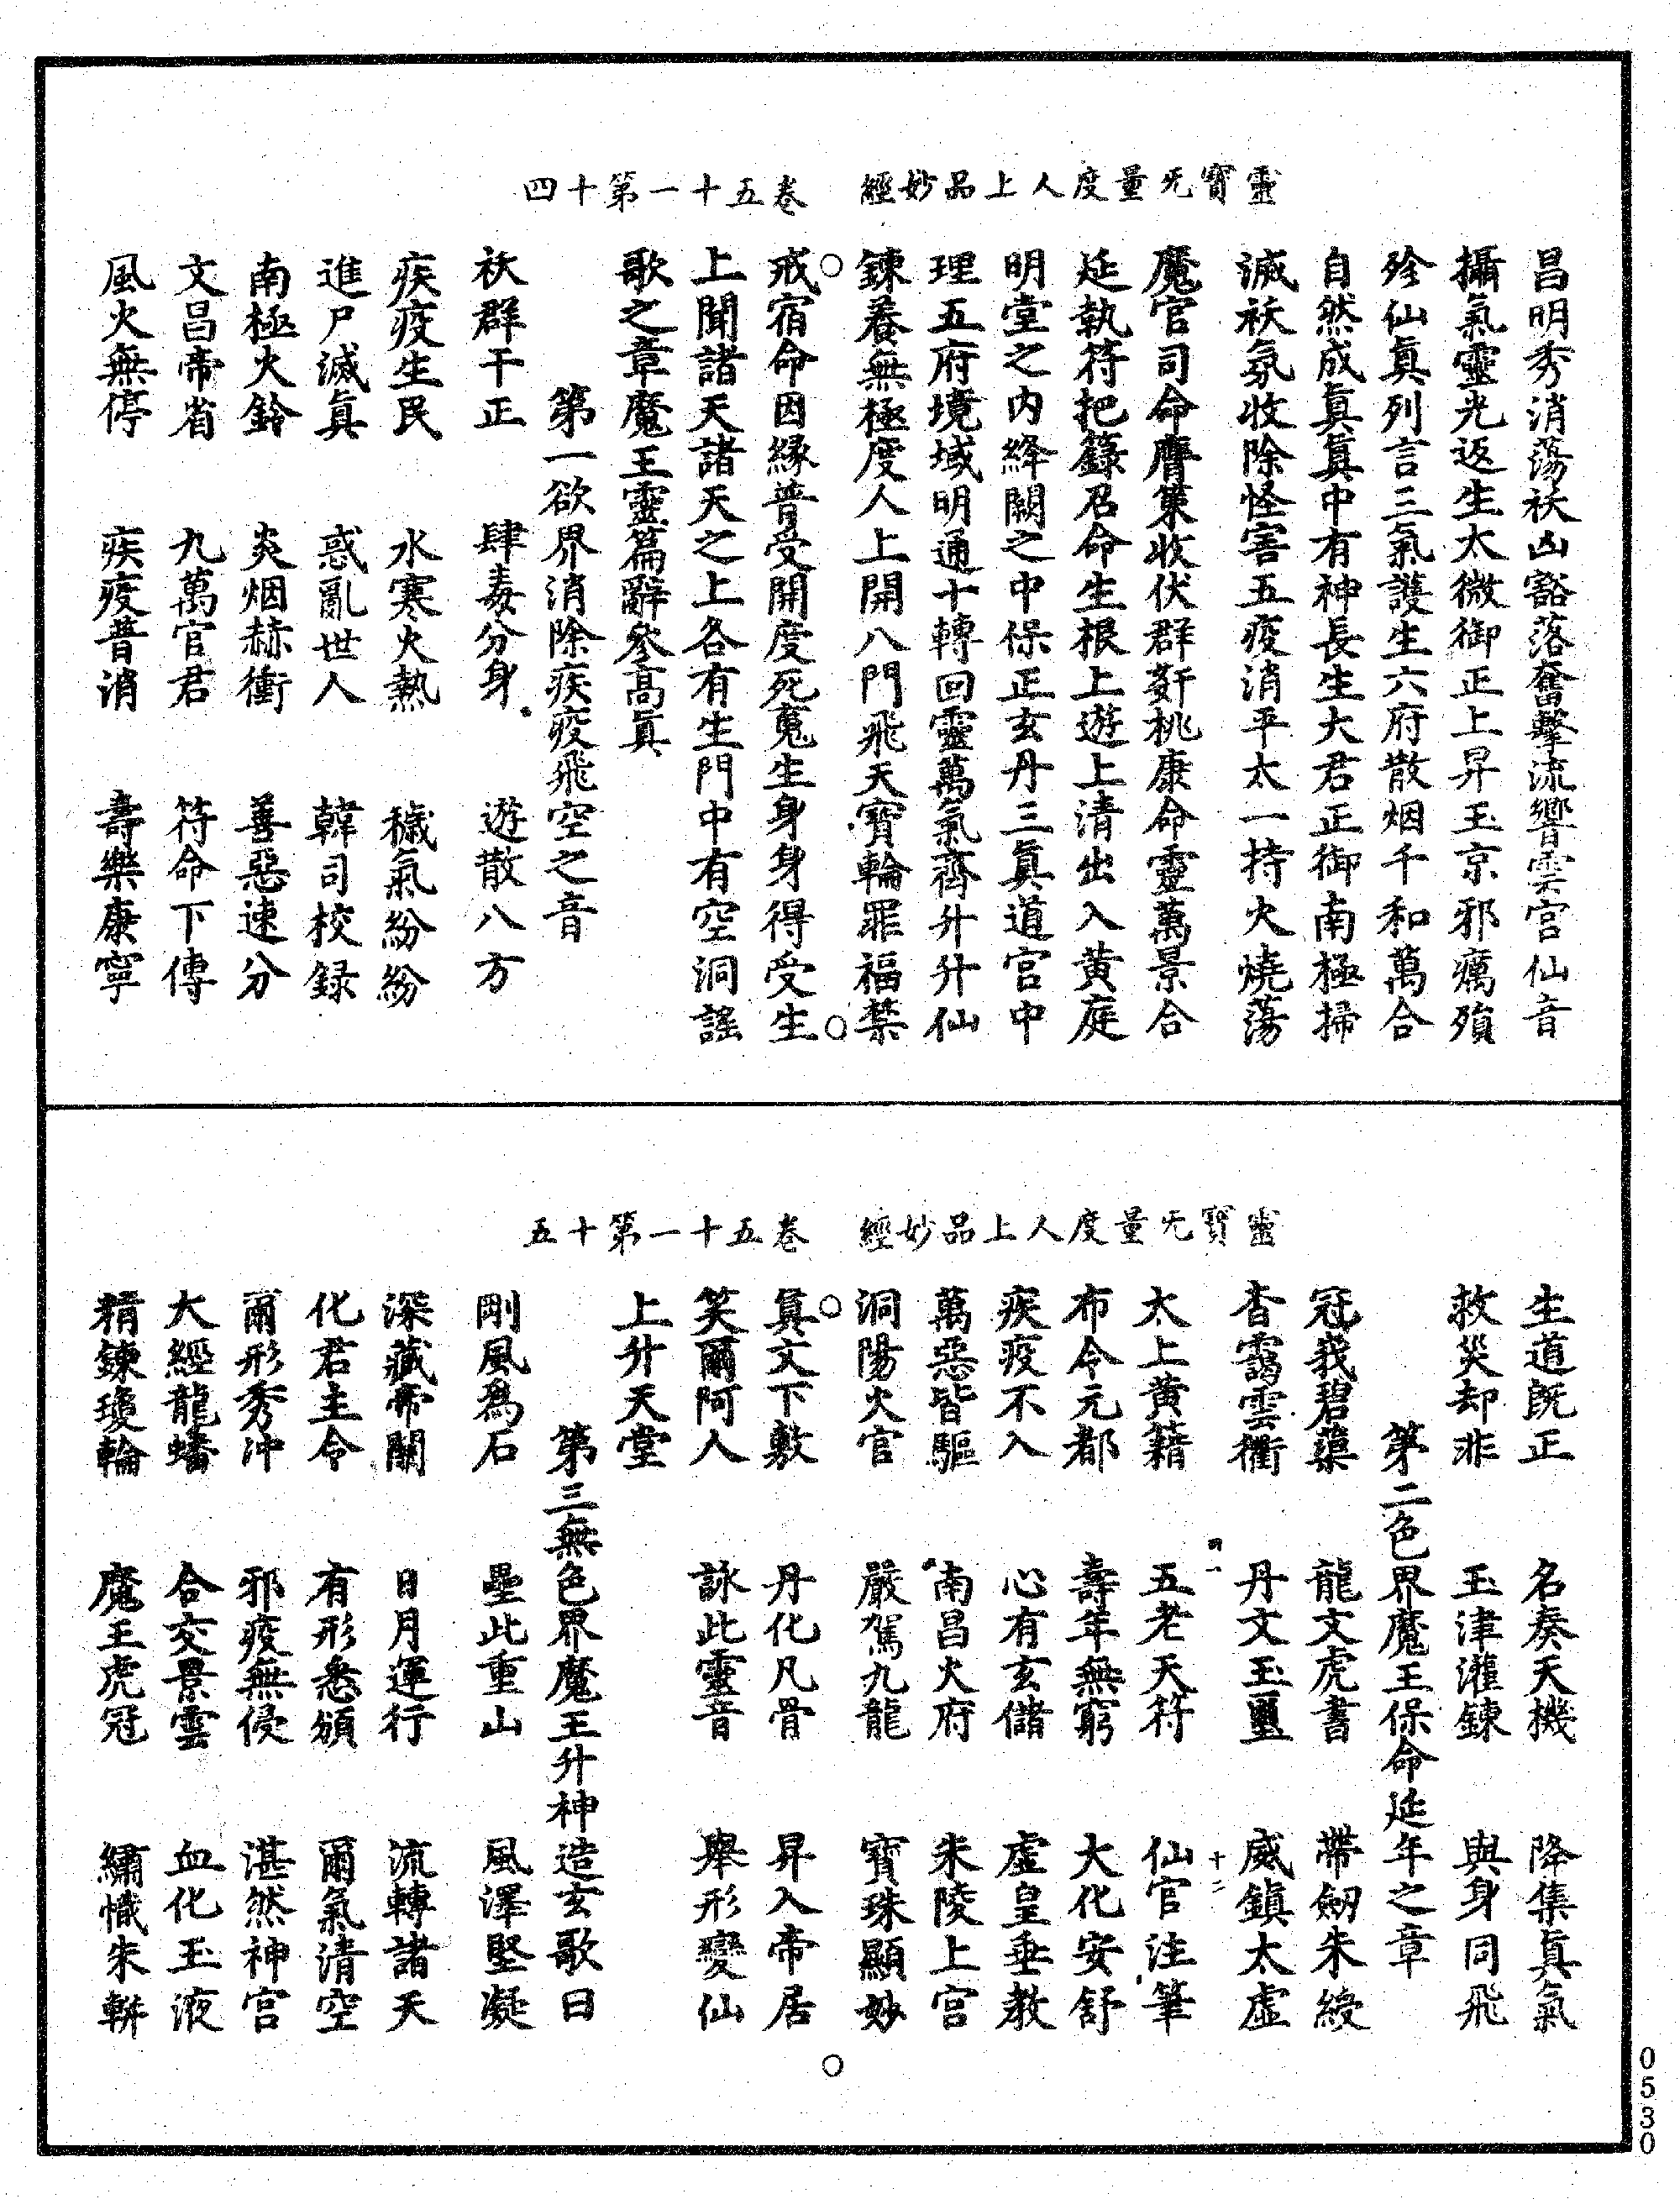 靈寶无量度人上品妙經　卷五十一第十四
昌明秀消蕩祅凶豁落奮擊流響雲宮仙音
攝氣靈光返生太微御正上昇玉京邪癘殞
殄仙眞列言三氣護生六府散烟千和萬合
自然成眞眞中有神長生大君正御南極掃
滅祅氛收除怪害五疫消平太一持火燒蕩
魔官司命膺策收伏群姧桃康命靈萬景合
延執符把籙召命生根上遊上清出入黃庭
明堂之內絳闕之中中保正玄丹三眞道官中
理五府境域明通十轉回靈萬氣齊升升仙
鍊養無極度人上開八門飛天寶輪罪福禁
戒宿命因緣普受開度死䰟生身身得受生
上聞諸天諸天之上各有生門中有空洞謠
歌之章魔王靈篇辭參高眞
第一欲界消除疾疫飛空之音
祅群干正　肆毒分身　遊散八方
疾疫生民　水寒火熱　穢氣紛紛
進尸滅眞　惑亂世人　韓司校録
南極火鈴　炎烟赫衝　善惡速分
文昌帝省　九萬官君　符命下傳
風火無停　疾疫普消　壽樂康寧
靈寶无量度人上品妙經　卷五十一第十五
生道旣正　名奏天機　降集眞氣
救災却非　玉津灌鍊　與身同飛
第二色界魔王保命延年之章
冠我碧蕖　龍文虎書　帶劒朱綬
杳靄雲衢　丹文玉璽　威鎮太虛
太上黃籍　五老天符　仙官注筆
布令元都　壽年無窮　大化安舒
疾疫不入　心有玄儲　虛皇垂教
萬惡皆驅　南昌火府　朱陵上宮
洞陽火官　嚴駕九龍　寶珠顯妙
眞文下敷　丹化凡骨　昇入帝居
笑爾阿人　詠此靈音　舉形變仙
上升天堂
第三無色界魔王升神造玄歌曰
剛風爲石　壘此重山　風澤堅凝
深藏帝關　日月運行　流轉諸天
化君主令　有形悉頒　爾氣清空
爾形秀沖　邪疫無侵　湛然神宮
大經龍蟠　合交景雲　血化玉液
精鍊瓊輪　魔王虎冠　繡幟朱輧
四一　十二
0530